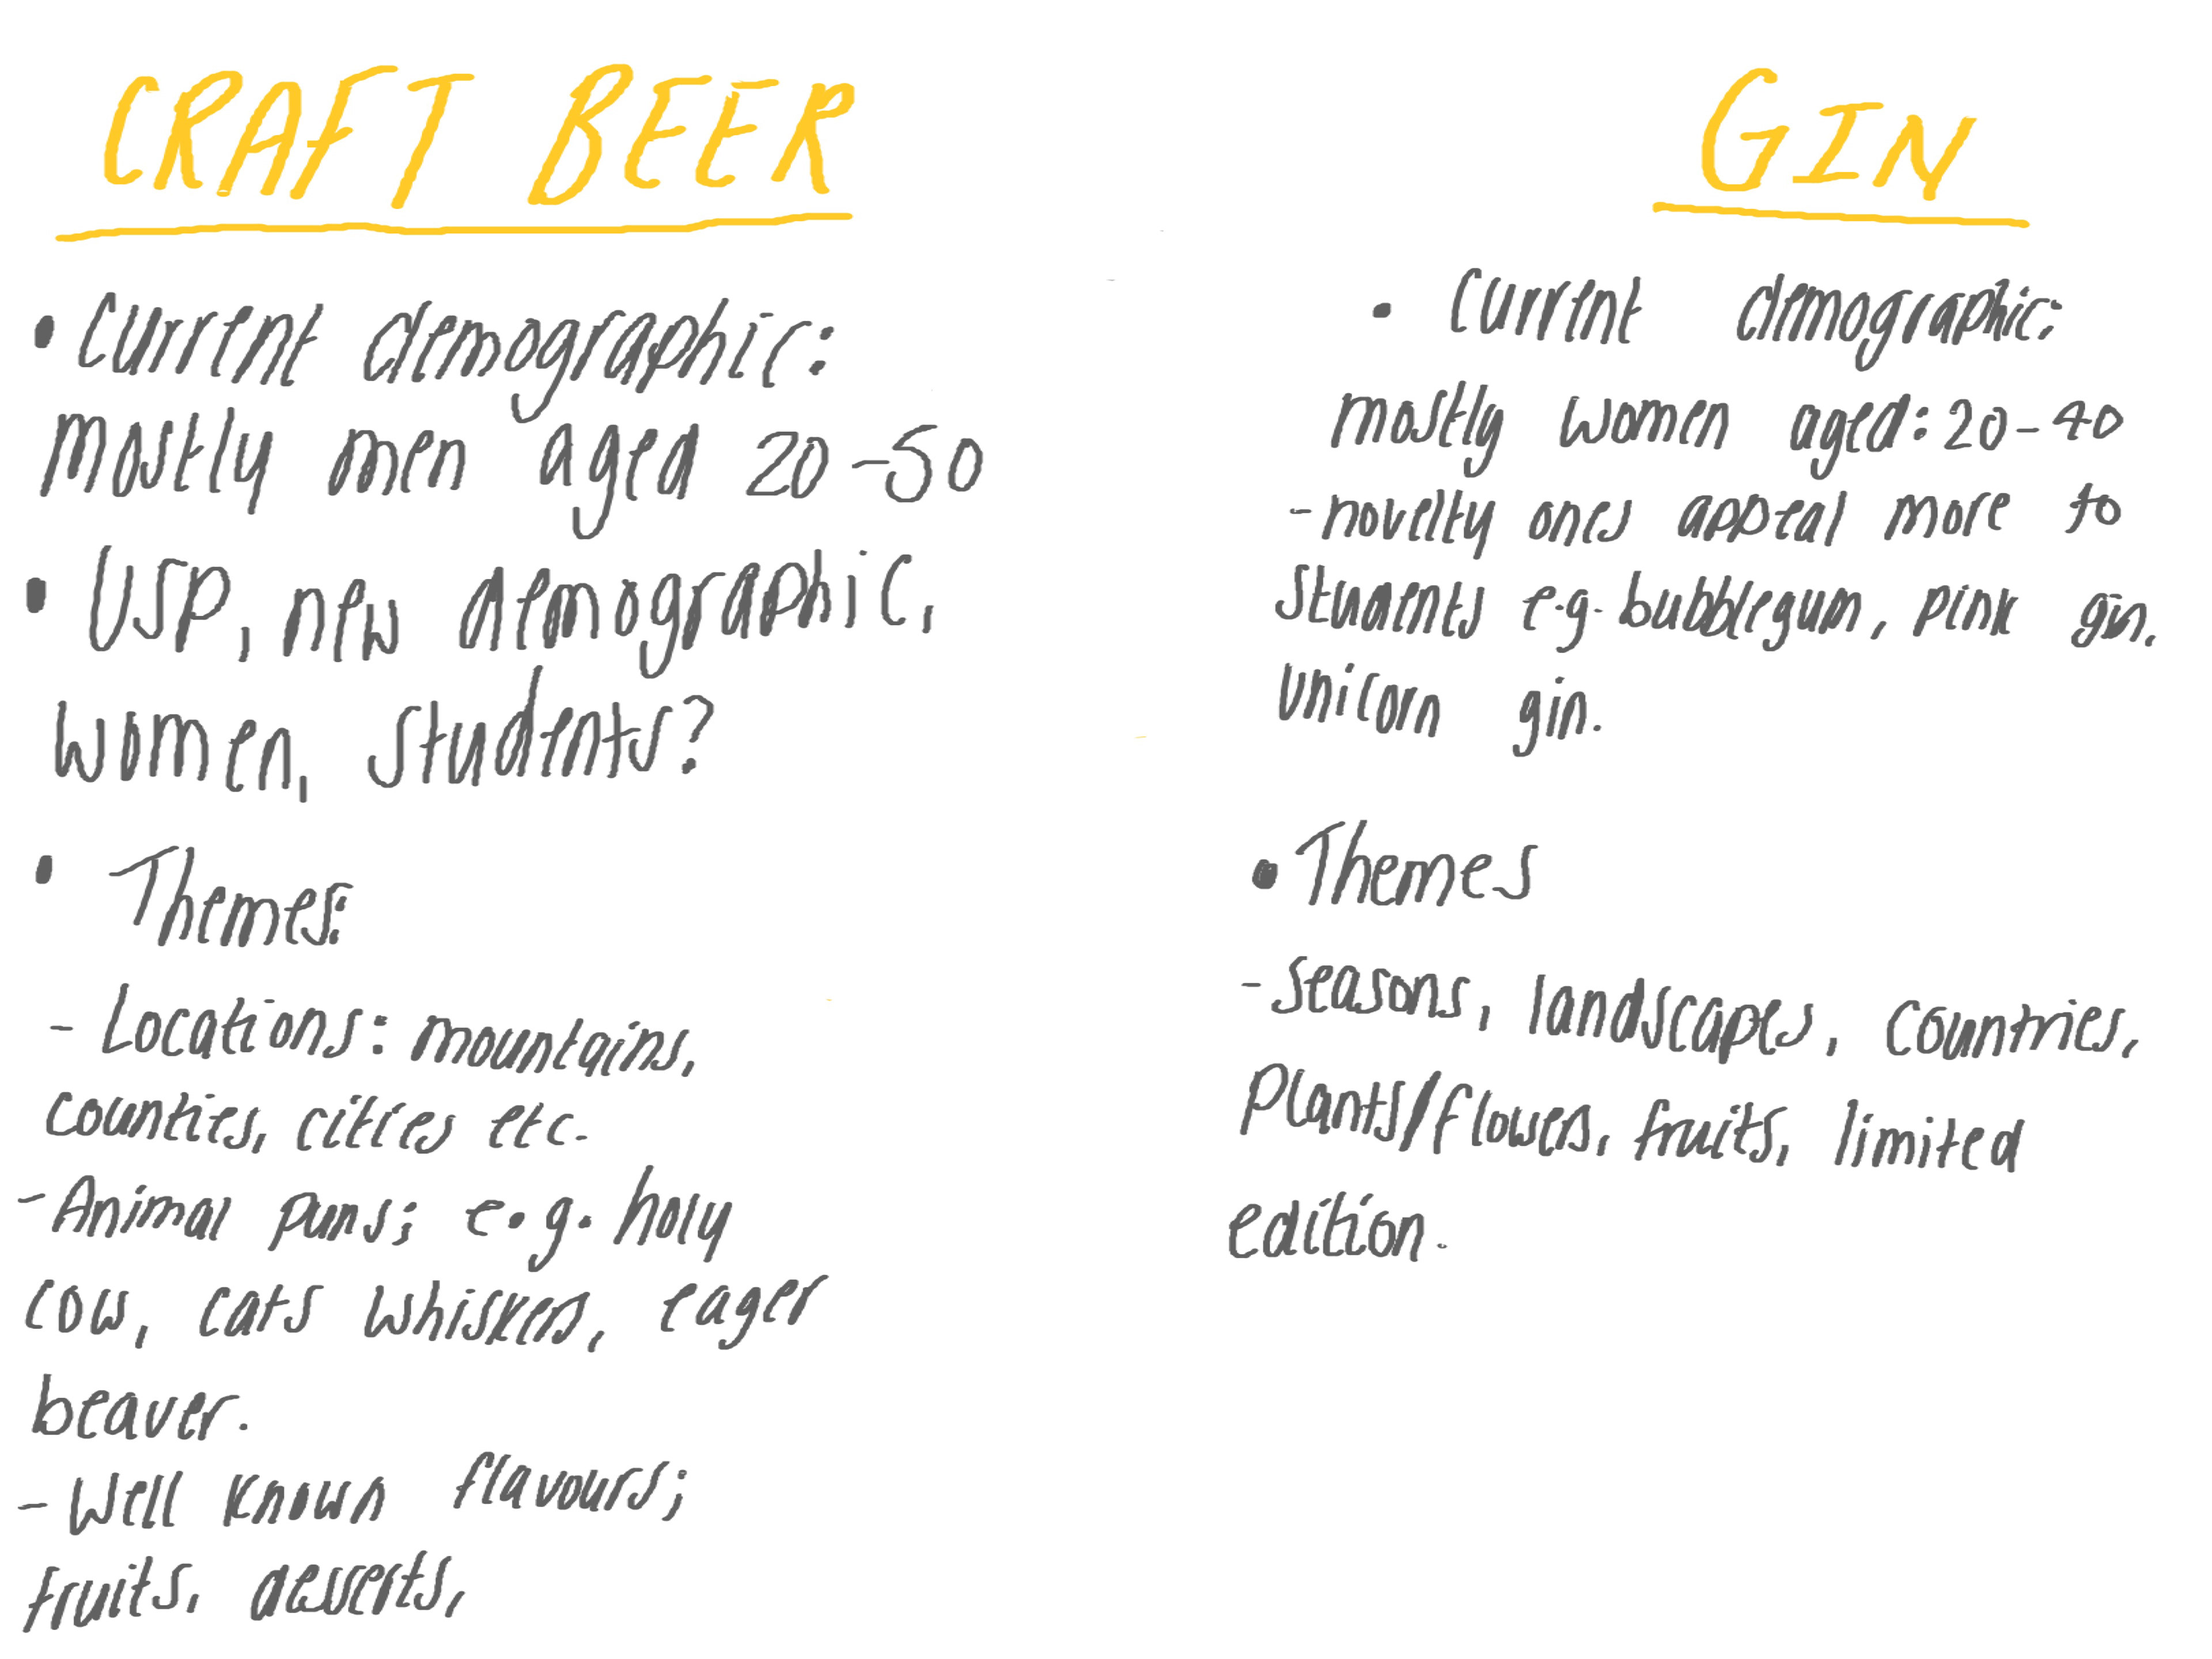 CRAFT BEER
• Current demographic:
mostly men aged 20-50
• USP, new demographic,
women, students?
• Themes:
- Locations: mountains,
counties, cities etc.
- Animal puns; e.g. holy
cow, cats whiskers, eager
beaver.
- Well known flavours;
fruits, desserts,
GIN
• Current demographic:
mostly women aged: 20-40
- novelty ones appeal more to
students e.g. bubblegum, pink gin,
unicorn gin.
• Themes
- Seasons, landscapes, countries,
plants/flowers, fruits, limited
edition.